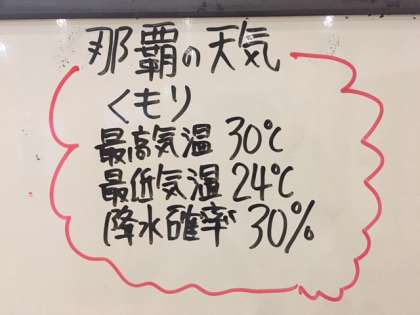 那覇の天気
くもり
最高気温 30℃
最低気温 24℃
降水確率 30%